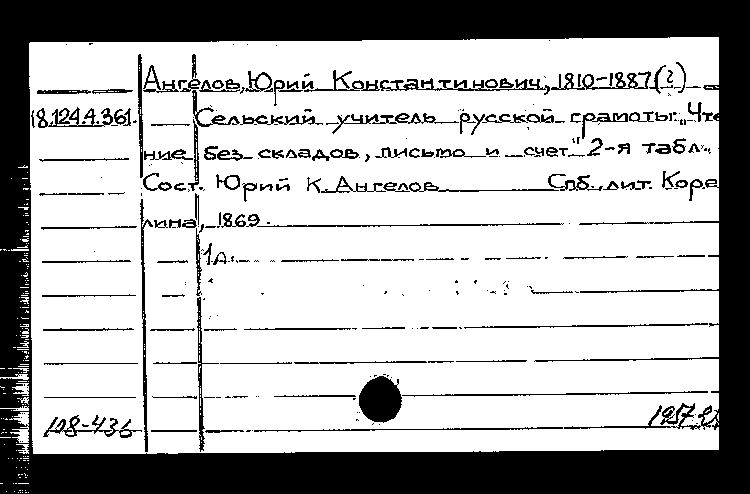 Ангелов, Юрий Константинович, 1810-1887(?)
18.124.4.361. Сельский учитель русской грамоты: „Чте
ние без складов, письмо и счет" 2-я табл.
Сост. Юрий К. Ангелов Спб., лит. Коре
лина, 1869.
1л.
108-436 1957